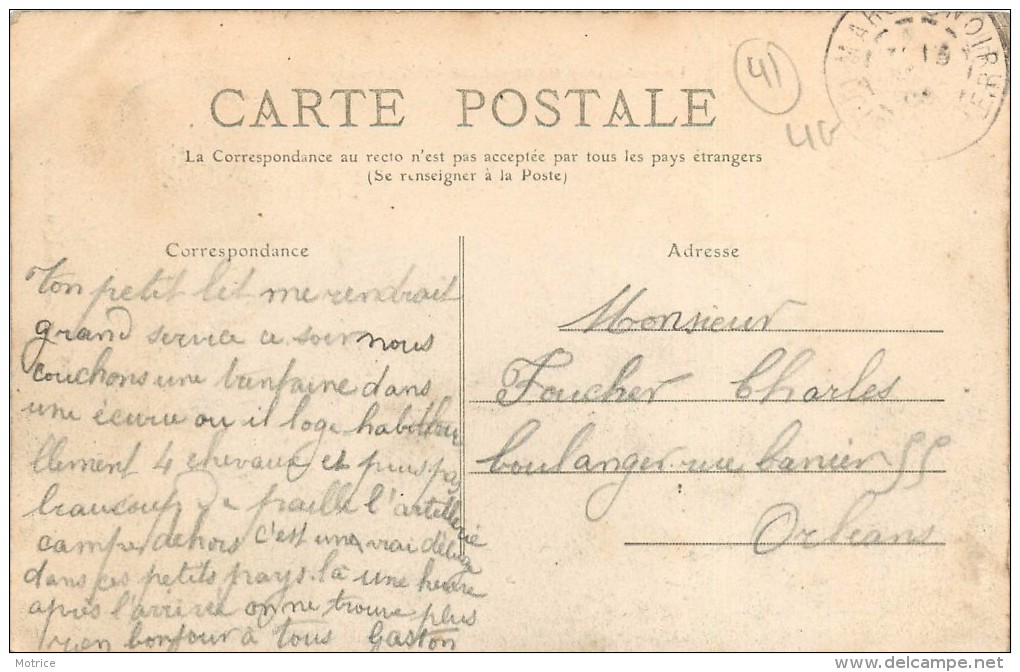 41
4G
CARTE POSTALE
La Correspondance au recto n'est pas acceptée par tous les pays étrangers
(Se renseigner à la Poste)
Correspondance
Adresse
Ton petit lit me rendrait
grand service ce soir nous
couchons une dans
une écurie ou il loge habittue
llement 4 chevaux et puis pas
beaucoup de paille l'artellerie
campe dehors c'est une vrai déluge
dans ces petits pays là une heure
après l'arrivée on ne trouve plus
rien bonjour à tous Gaston
Monsieur
Foucher Charles
boulanger rue banier 55
Orleans
Motrice
www.delcampe.net